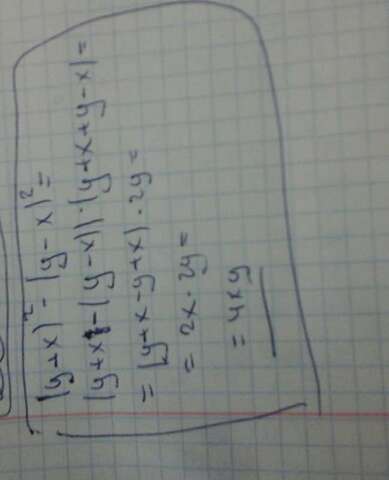 (y+x)² - (y-x)² =
(y+x-(y-x))·(y+x+y-x) =
= (y+x-y+x)·2y =
= 2x·2y =
= 4xy